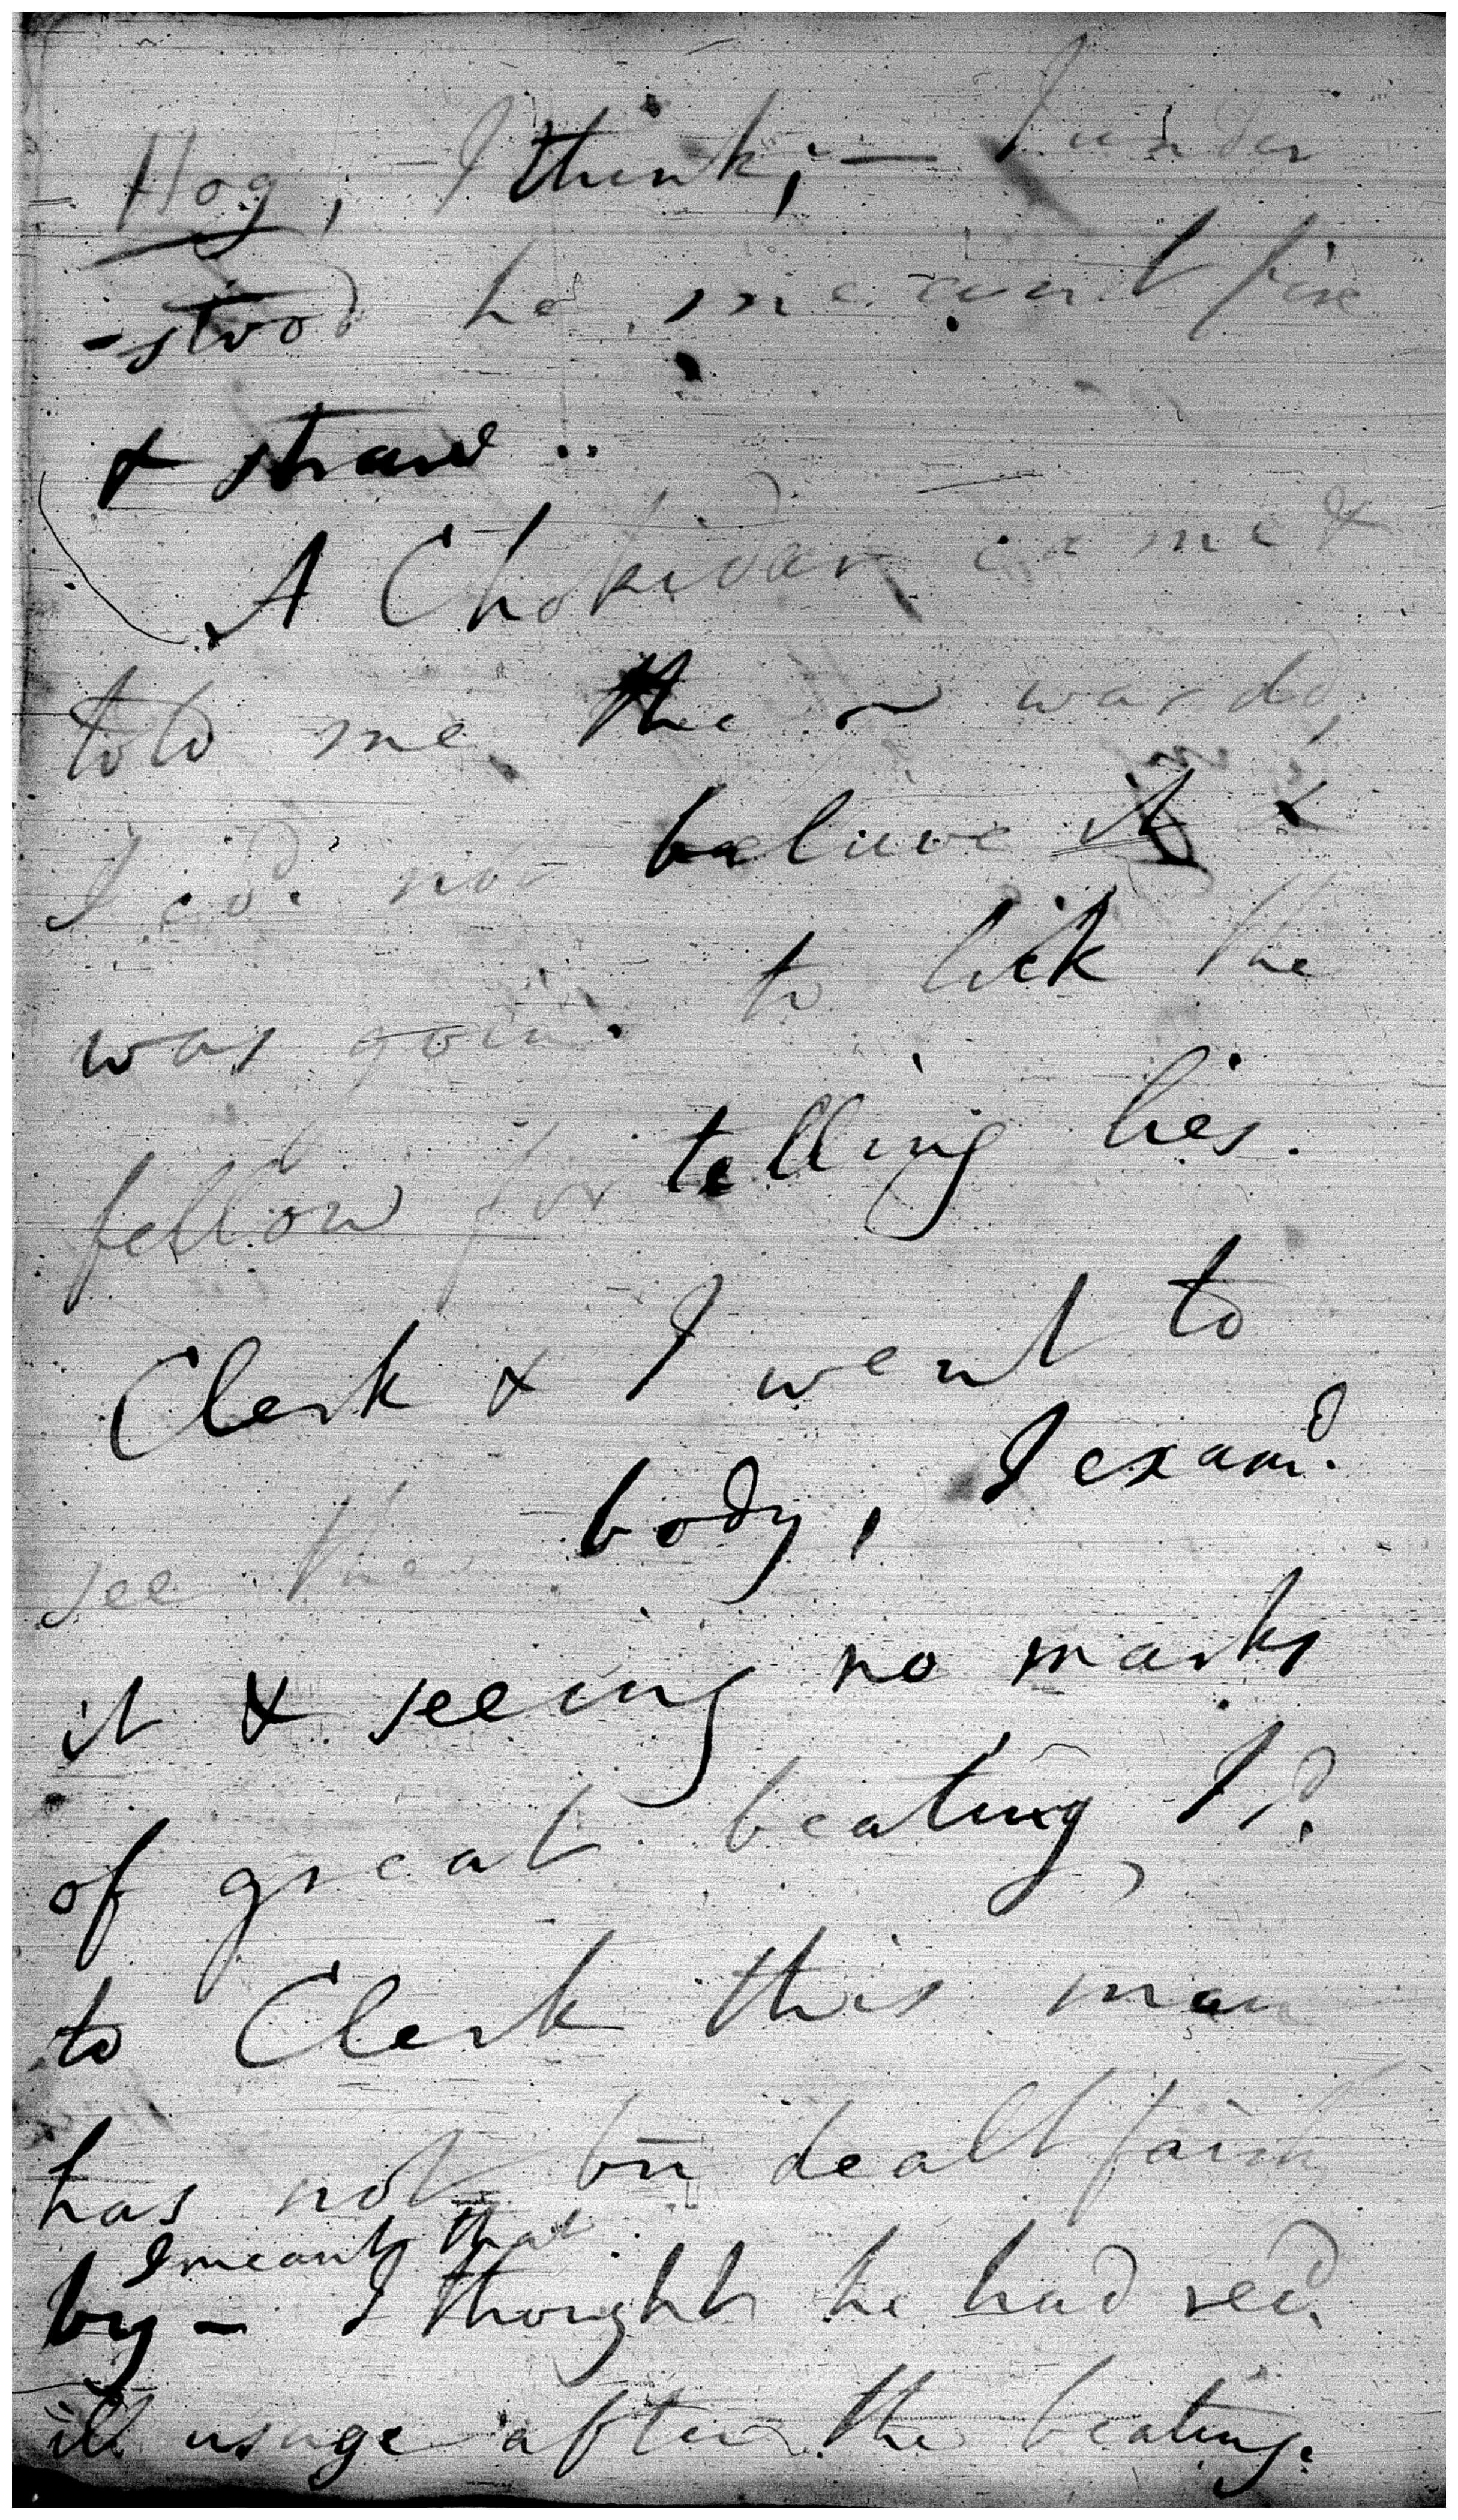 Hog, I think; — I under
-stood he meant fire
& straw ..
A Chokidar came &
told me the ~ was dd,
I cd. not believe it &
was going to lick the
fellow for telling lies.
Clerk & I went to
see the body, I examd.
it & seeing no marks
of great beating, I sd.
to Clerk this man
has not bn dealt fairly
I meant that
by — I thought he had recd.
ill usage after the beating.